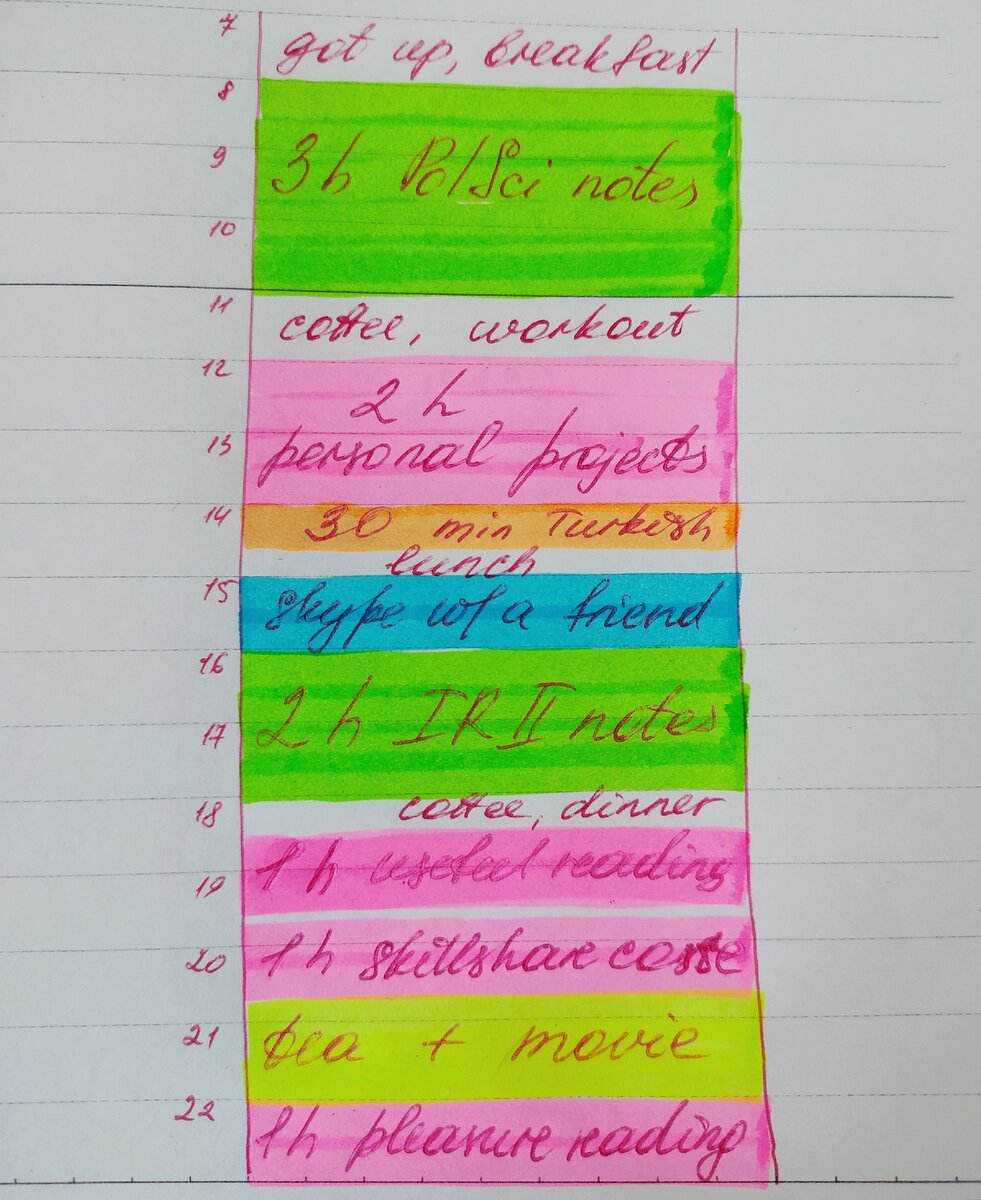 7
got up, breakfast
8
9
3h Pol Sci notes
10
11
coffee, workout
12
2 h
13
personal projects
14
30 min Turkish
lunch
15
skype w/ a friend
16
2 h IR II notes
17
18
coffee, dinner
1 h useful reading
19
20
1 h skillshare
21
tea + movie
22
1h pleasure reading